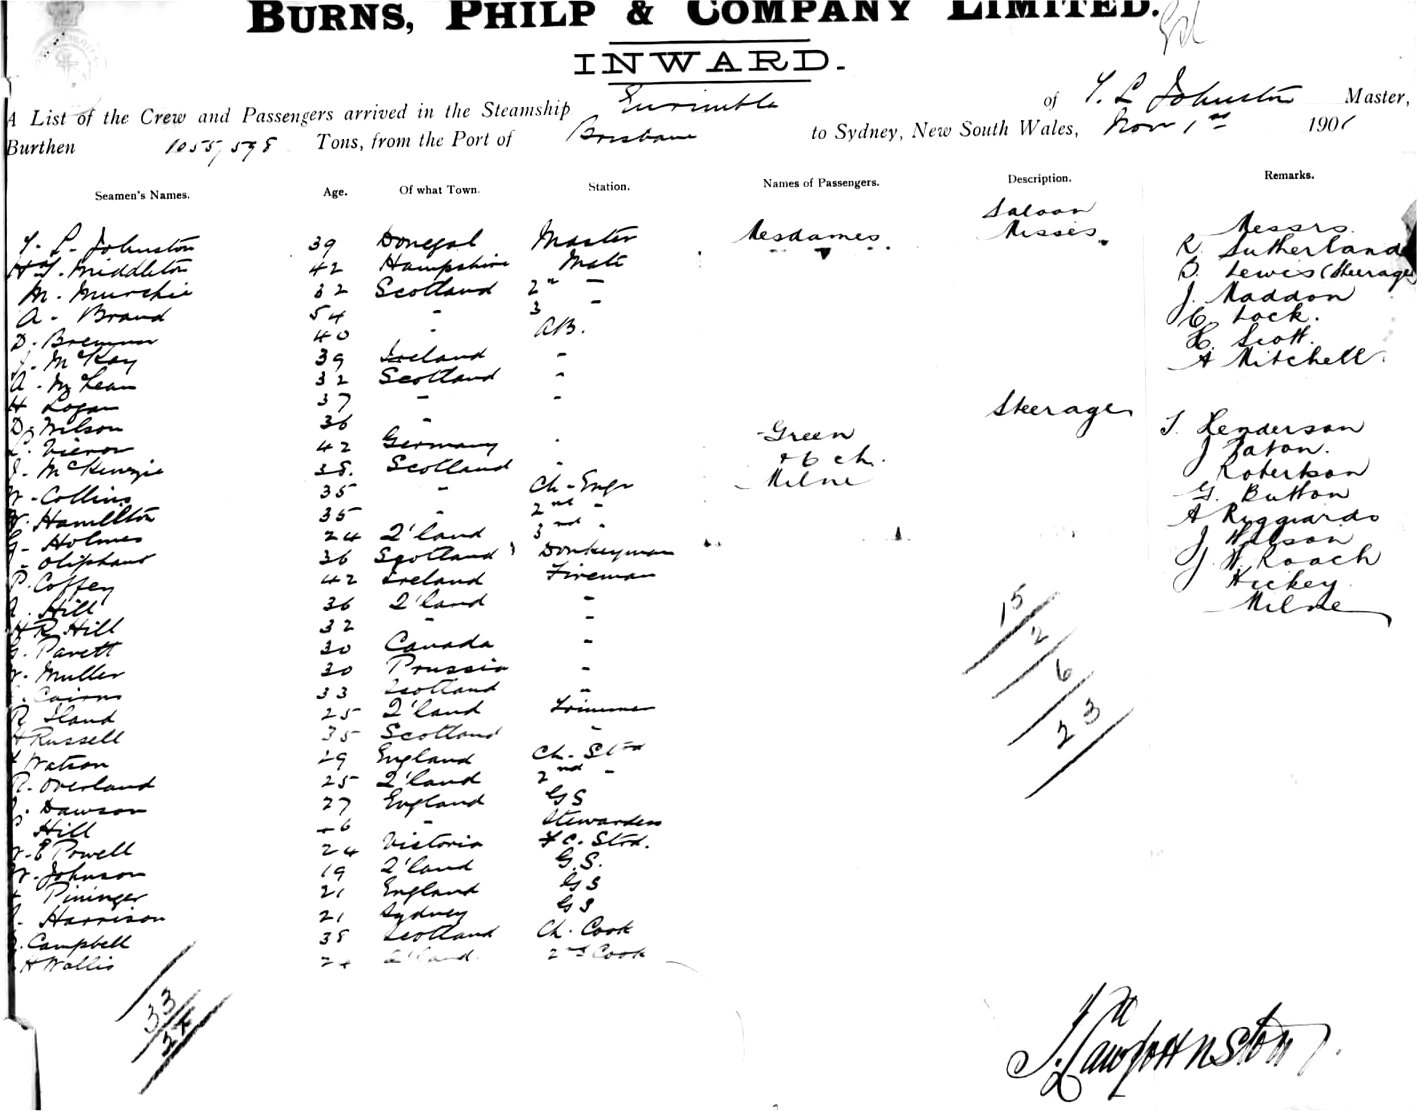 BURNS, PHILP & COMPANY LIMITED.
INWARD.
A List of the Crew and Passengers arrived in the Steamship Eurimbla of T. L. Johnston Master,
Burthen 1055/598 Tons, from the Port of Brisbane to Sydney, New South Wales, Nov 1st 1901
Seamen's Names. Age. Of what Town. Station. Names of Passengers. Description. Remarks.
Saloon
T. L. Johnston 39 Donegal Master Mesdames. Misses. Messrs.
Middleton 42 Hampshire Mate R. Sutherland
M. Murchie 32 Scotland 2nd - D. Lewis (Steerage)
A. Brand 54 - 3 - J. Maddon
D. Bremner 40 - AB. C. Lock.
J. McKay 39 Ireland - H. Scott
A. McLean 32 Scotland - A Mitchell
H Logan 37 - -
D. Wilson 36 - Steerage T. Henderson
Vieron 42 Germany - Green J Paton.
J. McKenzie 38. Scotland - Robertson
W. Collins 35 - Ch. Engr Milne G. Button
W. Hamilton 35 - 2nd - A
G. Holmes 24 Q'land 3rd - J Wilson
J. Oliphant 36 Scotland Donkeyman J. W. Roach
P. Coffey 42 Ireland Fireman Hickey
A. Hill 36 Q'land - Milne
H R Hill 32 - -
G. Parett 30 Canada -
W. Muller 30 Prussia -
Cairns 33 Scotland -
R Iland 25 Q'land Trimmer
H Russell 35 Scotland -
Watson 29 England Ch. Std
R. Overland 25 Q'land 2nd -
J. Dawson 27 England GS
Hill 46 - Stewardess
W. E Powell 24 Victoria F C. Std.
W. Johnson 19 Q'land G.S.
Pininger 21 England GS
Harrison 21 Sydney GS
Campbell 38 Scotland Ch. Cook
H Wallis 24 Q'land. 2nd Cook
15
2
6
23
33